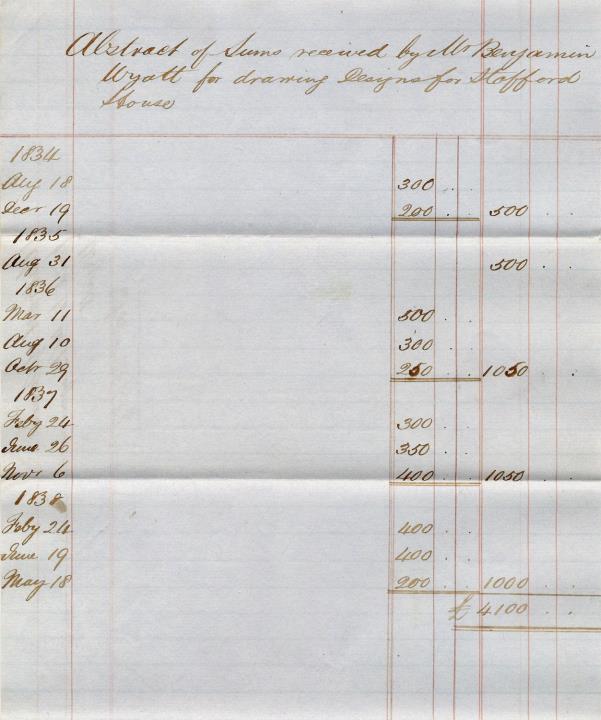 Abstract of Sums received by Mr Benjamin
Wyatt for drawing Designs for Stafford
House
1834
Aug 18 300 . .
Decr 19 200 . . 500 . .
1835
Aug 31 500 . .
1836
Mar 11 500 . .
Aug 10 300 . .
Octr 29 250 . . 1050 . .
1837
Feby 24 300 . .
June 26 350 . .
Novr 6 400 . . 1050 . .
1838
Feby 24 400 . .
June 19 400 . .
May 18 200 . . 1000 . .
£ 4100 . .